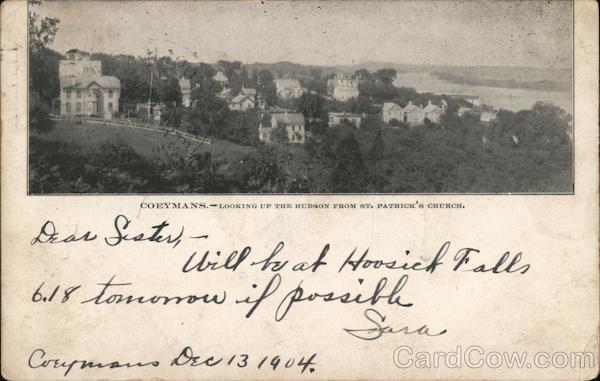 COEYMANS.—LOOKING UP THE HUDSON FROM ST. PATRICK'S CHURCH.
Dear Sister,—
Will be at Hoosick Falls
6.18 tomorrow if possible
Sara
Coeymans Dec 13 1904.
CardCow.com